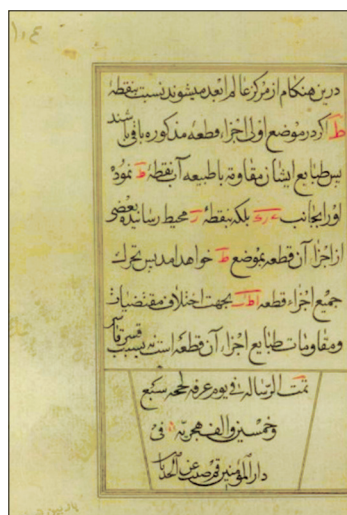 درین هنکام از مرکز عالم ابعد میشوند نسبت بنقطهٔ
ط اکر در موضع اولی اجزاء قطعه مذکوره باقی باشند
پس طبایع ایشان مقاومة با طبیعه آن نقطهٔ ط نموده
اورا بجانب بلکه بنقطهٔ محیط رسانیده بعضی
از اجزاء آن قطعه بموضع ط خواهد امد پس تحرک
جمیع اجزاء قطعه بجهت اختلاف مقتضیات
ومقاومات طبایع اجزاء آن قطعه است نه بسبب قسر قاسر
تمت الرساله فی یوم عرفه لحجه سبع
وخمسین والف هجریه فی
دار المؤمنین قم صینت عن الحدثان